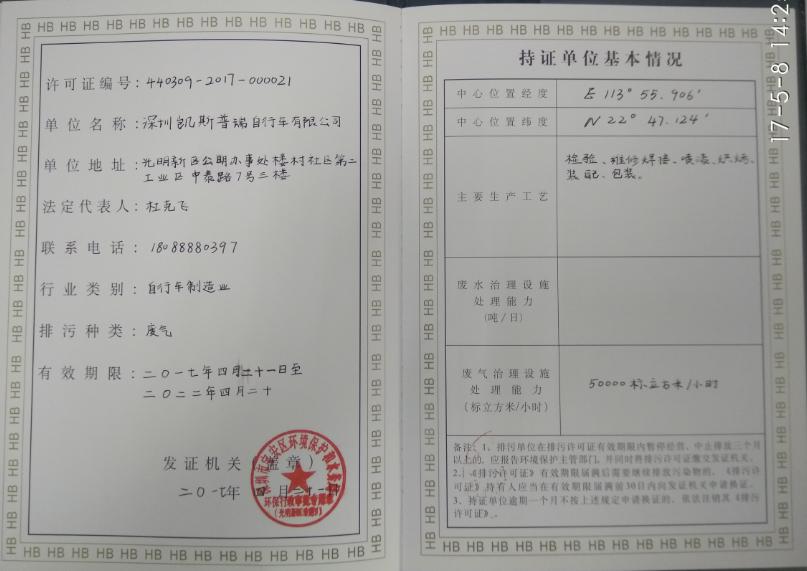 许可证编号：440309-2017-000021
单位名称：深圳凯斯普瑞自行车有限公司
单位地址：光明新区公明办事处楼村社区第二
工业区中泰路7号三楼
法定代表人：杜克飞
联系电话：18088880397
行业类别：自行车制造业
排污种类：废气
有效期限：二〇一七年四月二十一日至
二〇二二年四月二十
发证机关（盖章）
二〇一七年四月二十一日
持证单位基本情况
中心位置经度 E 113° 55.906′
中心位置纬度 N 22° 47.124′
主要生产工艺
检验、维修焊接、喷漆、烘烤、
装配、包装。
废水治理设施
处理能力
（吨/日）
废气治理设施
处理能力
（标立方米/小时）
50000标立方米/小时
备注：1、排污单位在排污许可证有效期限内暂停经营、中止排放三个月
以上的，应报告环境保护主管部门，并同时将排污许可证缴交发证机关。
2、《排污许可证》有效期限届满后需要继续排放污染物的，《排污许可
证》持有人应当在有效期限届满前30日内向发证机关申请换证。
3、持证单位逾期一个月不按上述规定申请换证的，依法注销其《排污
许可证》。
17-5-8 14:2